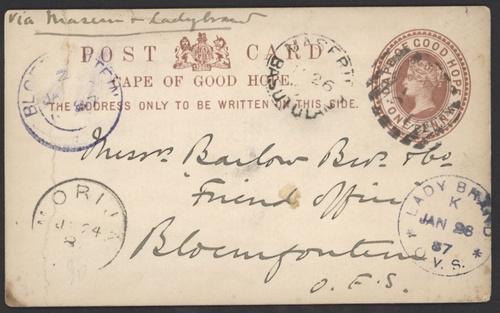 Via Maseru & Ladybrand
POST CARD
CAPE OF GOOD HOPE.
THE ADDRESS ONLY TO BE WRITTEN ON THIS SIDE.
CAPE OF GOOD HOPE
ONE PENNY
MASERU
26
BASUTOLAND
BLOEMFONTEIN
Messrs Barlow Bros. & Co
Friend Office
Bloemfontein
O.F.S.
MORIJA
JA 24
LADYBRAND
K
JAN 26
87
O.V.S.